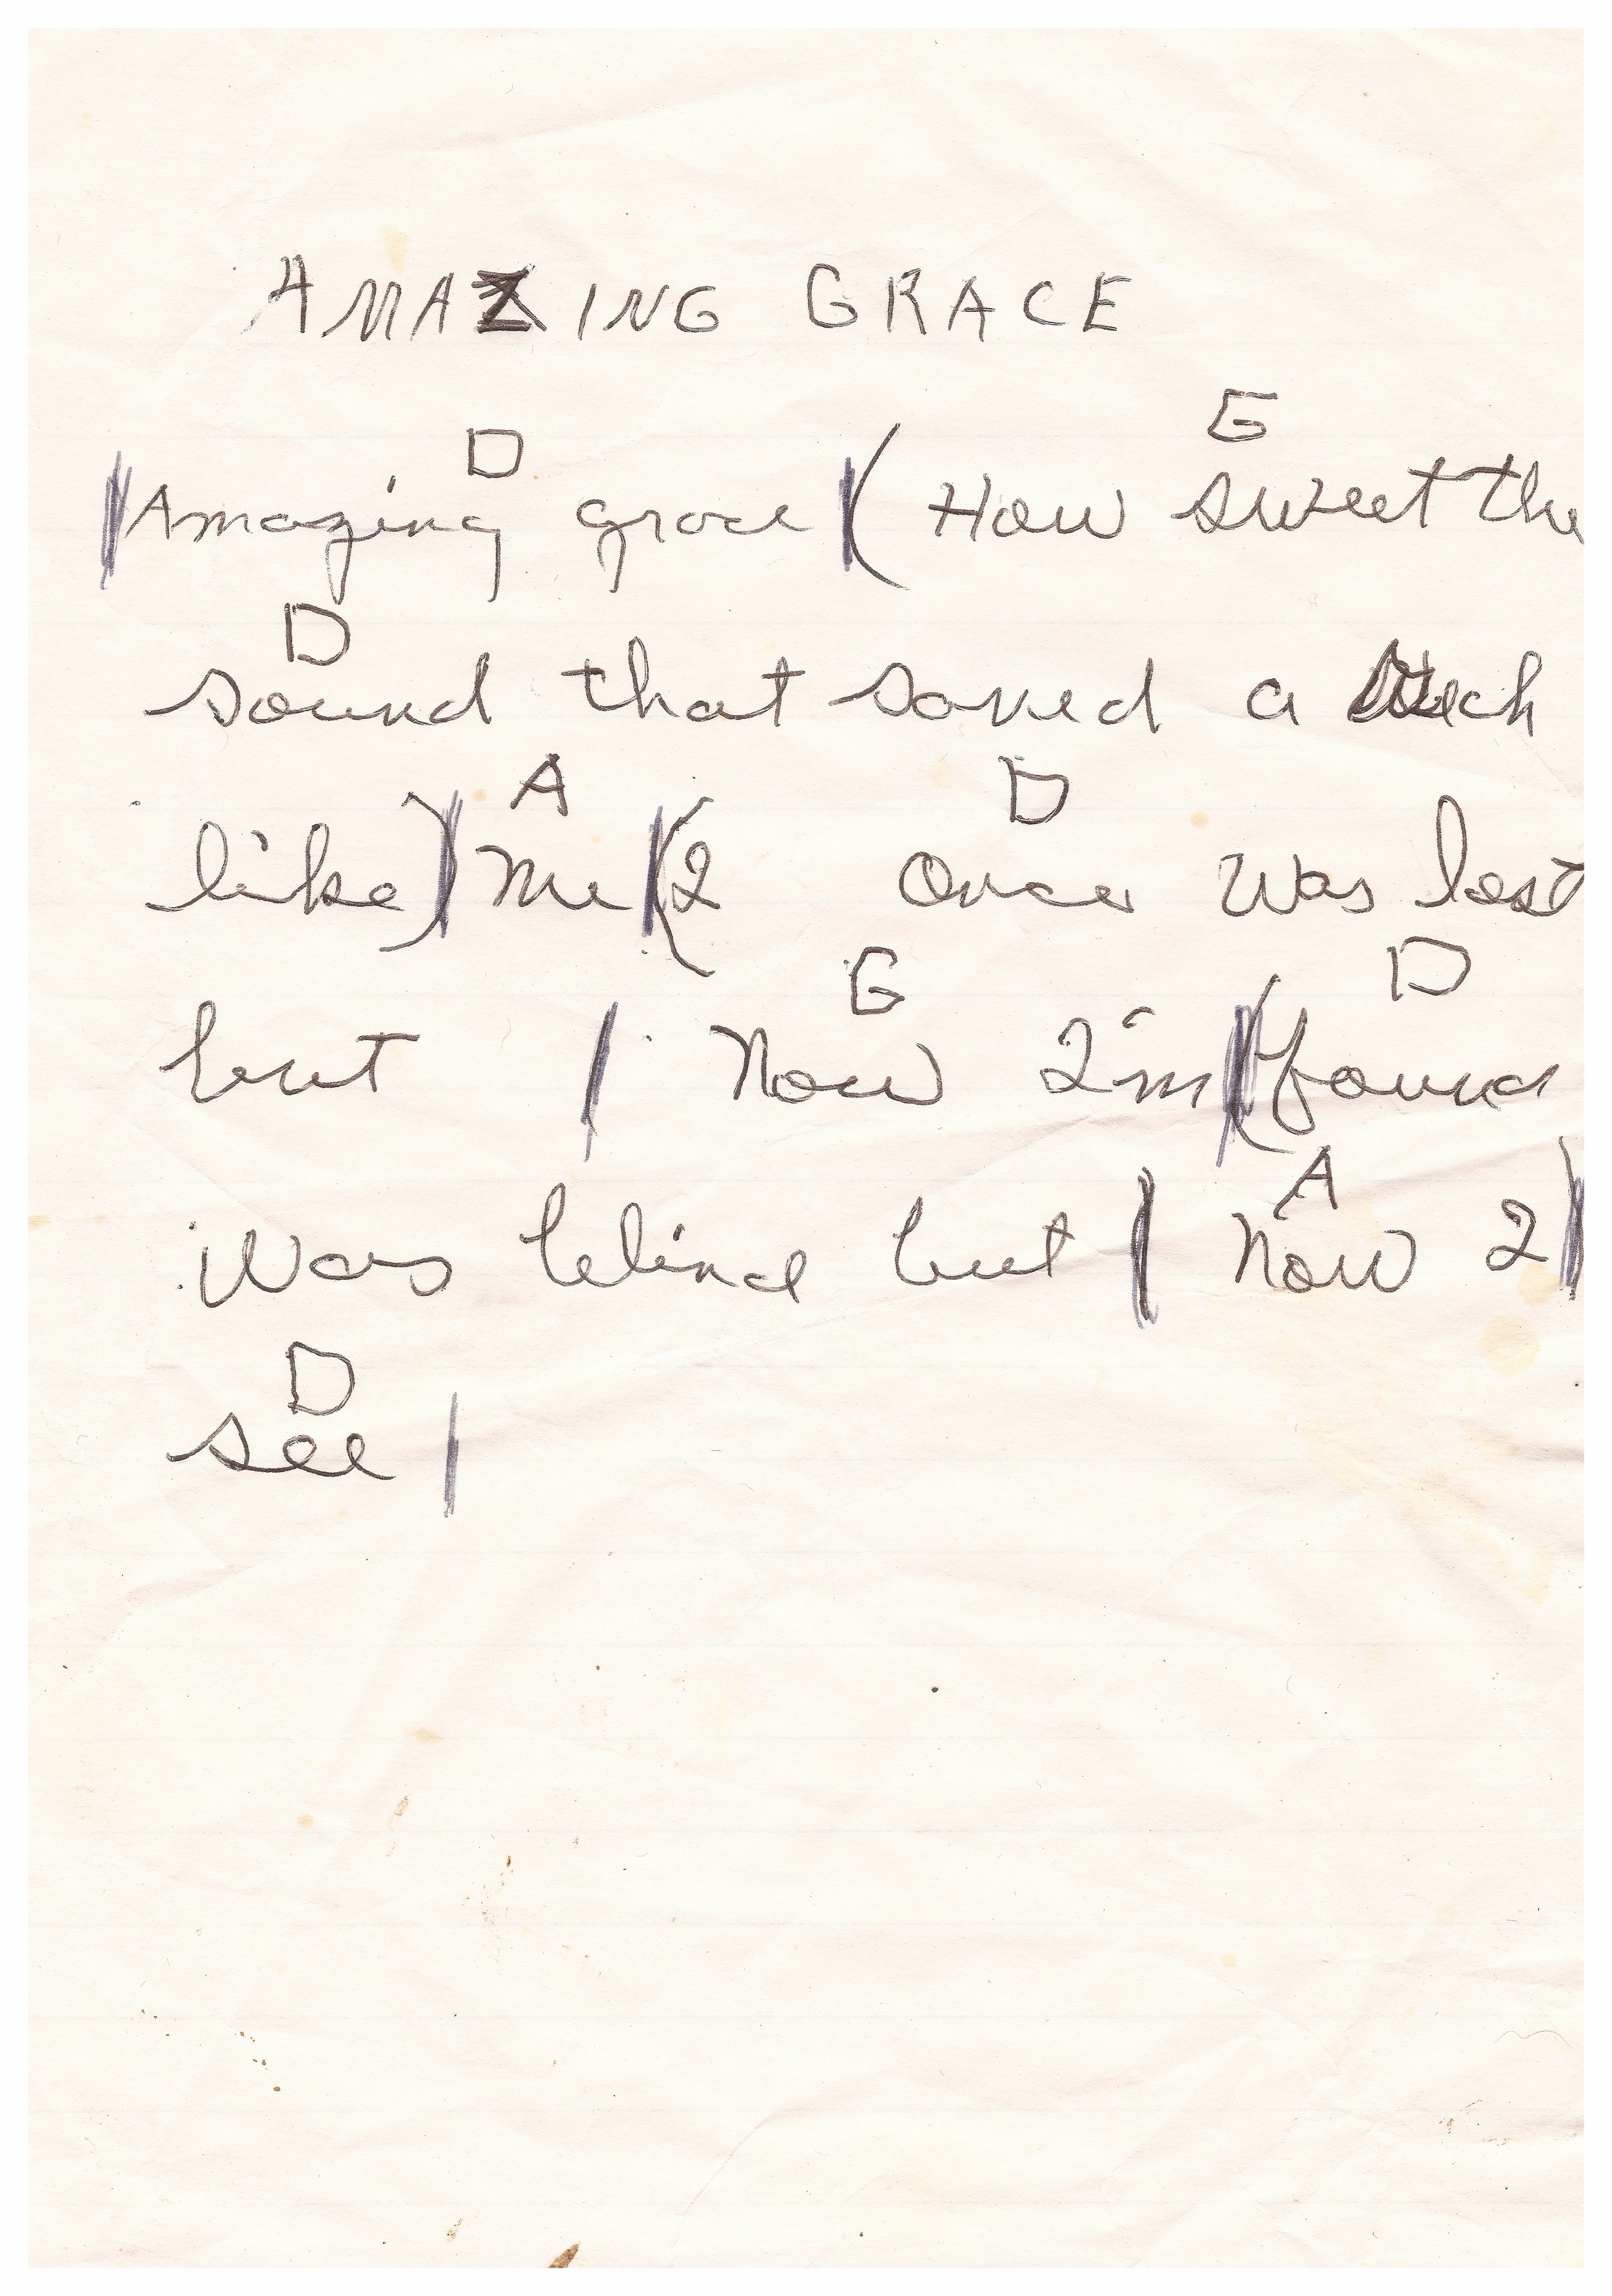 AMAZING GRACE
D G
|Amazing grace|( How sweet the
D
sound that saved a
A D
like)| me |(I once was lost
G D
but | now I'm |(found
A
was blind but | now I |)
D
see |